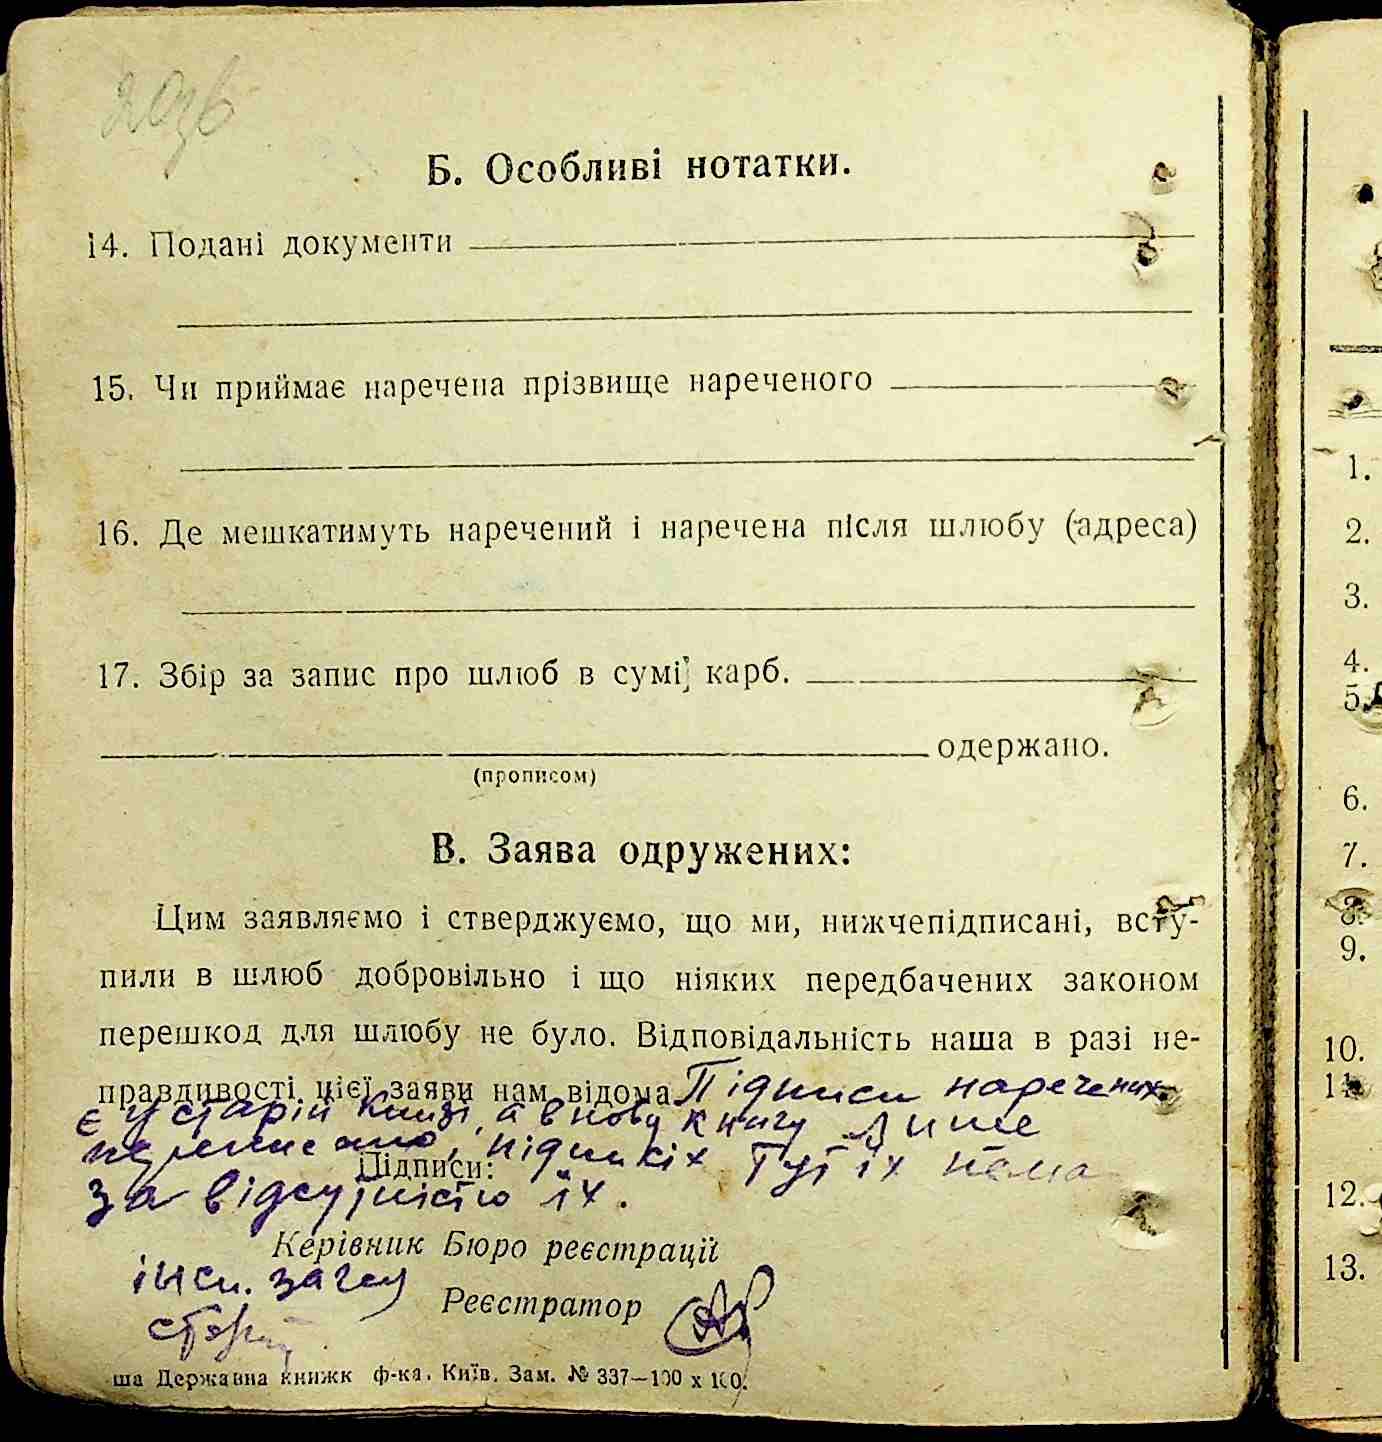 203б
Б. Особливі нотатки.
14. Подані документи
15. Чи приймає наречена прізвище нареченого
16. Де мешкатимуть наречений і наречена після шлюбу (адреса)
17. Збір за запис про шлюб в сумі карб.
одержано.
(прописом)
В. Заява одружених:
Цим заявляємо і стверджуємо, що ми, нижчепідписані, всту-
пили в шлюб добровільно і що ніяких передбачених законом
перешкод для шлюбу не було. Відповідальність наша в разі не-
правдивості цієї заяви нам відома Підписи наречених
є у старій книзі, а в нову книгу лише
переписано, підписіх тут їх нема
Підписи:
за відсутністю їх.
Керівник Бюро реєстрації
інсп. загсу
Реєстратор
ша Державна книжк ф-ка. Київ. Зам. № 337—100 х 100.
1.
2.
3.
4.
5.
6.
7.
8.
9.
10.
11.
12.
13.